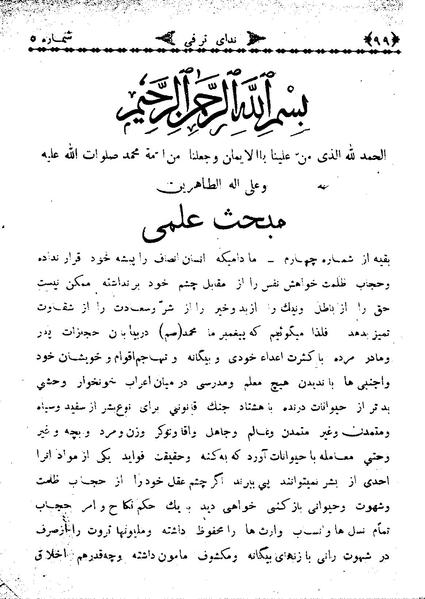 ﴿۹۹﴾ ندای ترقی شماره ۵
بسم الله الرحمن الرحیم
الحمد لله الذی من علینا باالایمان وجعلنا من امّة محمد صلوات الله علیه
وعلی اله الطاهرین
مبحث علمی
بقیه از شماره چهارم – مادامیکه انسان انصاف را پیشه خود قرار نداده
وحجاب ظلمت خواهش نفس را از مقابل چشم خود برنداشته ممکن نیست
حق را از باطل ونیک را از بد وخیر را از شرّ وسعادت را از شقاوت
تمیز بدهد فلذا میگوئیم که پیغمبر ما محمد(صم) در بیابان حجاز زات پدر
ومادر مرده با کثرت اعداء خودی و بیگانه و تهاجم اقوام و خویشان خود
واجنبی ها با ندیدن هیچ معلم ومدرسی در میان اعراب خونخوار وحشی
بدتر از حیوانات درنده با هشتاد جنك قانونی برای نوع بشر از سفید وسیاه
ومتمدن وغیر متمدن وعالم وجاهل واقا ونوکر وزن ومرد و بچه و غیر
وحتی معامله با حیوانات آورد که به کنه وحقیقت فواید یکی از مواد انرا
احدی از بشر نمیتوانند پی ببرند اگر چشم عقل خود را از حجاب ظلمت
وشهوت وحیوانی باز کنی خواهی دید با یك حکم نکاح و امر حجاب
تمام نسل ها ونسب وارث ها را محفوظ داشته وملیونها ثروت را از صرف
در شهوت رانی با زنهای بیگانه ومکشوف مامون داشته وچه قدر هم اخلاق